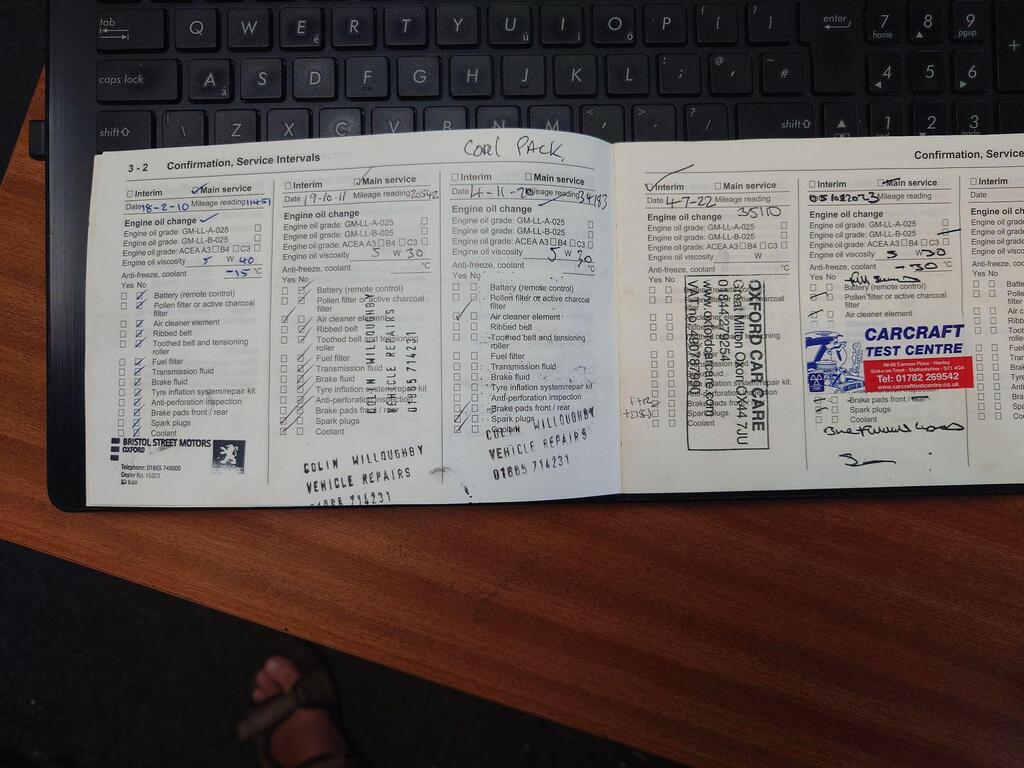 tab Q W E R T Y U I O P [ ] enter 7 8 9
é ú í ó home pgup
caps lock A S D F G H J K L ; @ ' ~ # 4 5 6
á
shift \ Z X C V B N M < , > . ? / shift 1 2 3
+
3 - 2 Confirmation, Service Intervals
COIL PACK
Interim Main service
Date 18-2-10 Mileage reading 11451
Engine oil change
Engine oil grade: GM-LL-A-025
Engine oil grade: GM-LL-B-025
Engine oil grade: ACEA A3 B4 C3
Engine oil viscosity 5 W 40
Anti-freeze, coolant -15 °C
Yes No
Battery (remote control)
Pollen filter or active charcoal
filter
Air cleaner element
Ribbed belt
Toothed belt and tensioning
roller
Fuel filter
Transmission fluid
Brake fluid
Tyre inflation system/repair kit
Anti-perforation inspection
Brake pads front / rear
Spark plugs
Coolant
BRISTOL STREET MOTORS
OXFORD
Telephone: 01865 749000
Interim Main service
Date 19-10-11 Mileage reading 20542
Engine oil change
Engine oil grade: GM-LL-A-025
Engine oil grade: GM-LL-B-025
Engine oil grade: ACEA A3 B4 C3
Engine oil viscosity 5 W 30
Anti-freeze, coolant °C
Yes No
Battery (remote control)
Pollen filter or active charcoal
filter
Air cleaner element
Ribbed belt
Toothed belt and tensioning
roller
Fuel filter
Transmission fluid
Brake fluid
Tyre inflation system/repair kit
Anti-perforation inspection
Brake pads front / rear
Spark plugs
Coolant
COLIN WILLOUGHBY
VEHICLE REPAIRS
01865 714231
COLIN WILLOUGHBY
VEHICLE REPAIRS
714231
Interim Main service
Date 4-11-20 Mileage reading 34183
Engine oil change
Engine oil grade: GM-LL-A-025
Engine oil grade: GM-LL-B-025
Engine oil grade: ACEA A3 B4 C3
Engine oil viscosity 5 W 30
Anti-freeze, coolant °C
Yes No
Battery (remote control)
Pollen filter or active charcoal
filter
Air cleaner element
Ribbed belt
Toothed belt and tensioning
roller
Fuel filter
Transmission fluid
Brake fluid
Tyre inflation system/repair kit
Anti-perforation inspection
Brake pads front / rear
Spark plugs
Coolant
COLIN WILLOUGHBY
VEHICLE REPAIRS
01865 714231
Confirmation, Service
Interim Main service
Date 4-7-22 Mileage reading
35110
Engine oil change
Engine oil grade: GM-LL-A-025
Engine oil grade: GM-LL-B-025
Engine oil grade: ACEA A3 B4 C3
Engine oil viscosity W
Anti-freeze, coolant °C
Yes No
Coolant
OXFORD CAR CARE
Great Milton, Oxon OX44 7JU
01844 279254
www.oxfordcarcare.com
Interim Main service
Mileage reading
Engine oil change
Engine oil grade: GM-LL-A-025
Engine oil grade: GM-LL-B-025
Engine oil grade: ACEA A3 B4 C3
Engine oil viscosity 5 W 30
Anti-freeze, coolant -30 °C
Yes No
Battery (remote control)
Pollen filter or active charcoal
filter
Air cleaner element
CARCRAFT
TEST CENTRE
Stoke-on-Trent - Staffordshire - ST1 4QA
Tel: 01782 269542
www.carcrafttestcentre.co.uk
Brake pads front / rear
Spark plugs
Coolant
Interim
Date
Engine oil change
Engine oil
Engine oil
Engine oil
Engine oil
Anti-freeze
Yes No